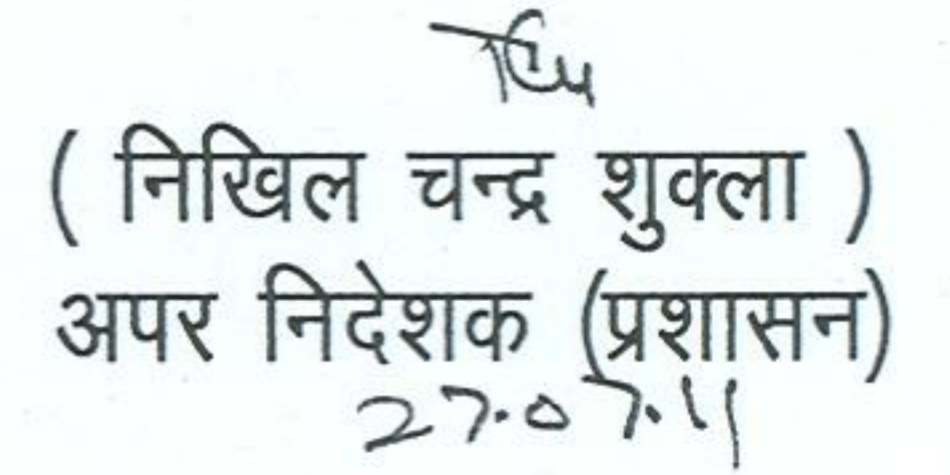 ( निखिल चन्द्र शुक्ला )
अपर निदेशक (प्रशासन)
27.07.11